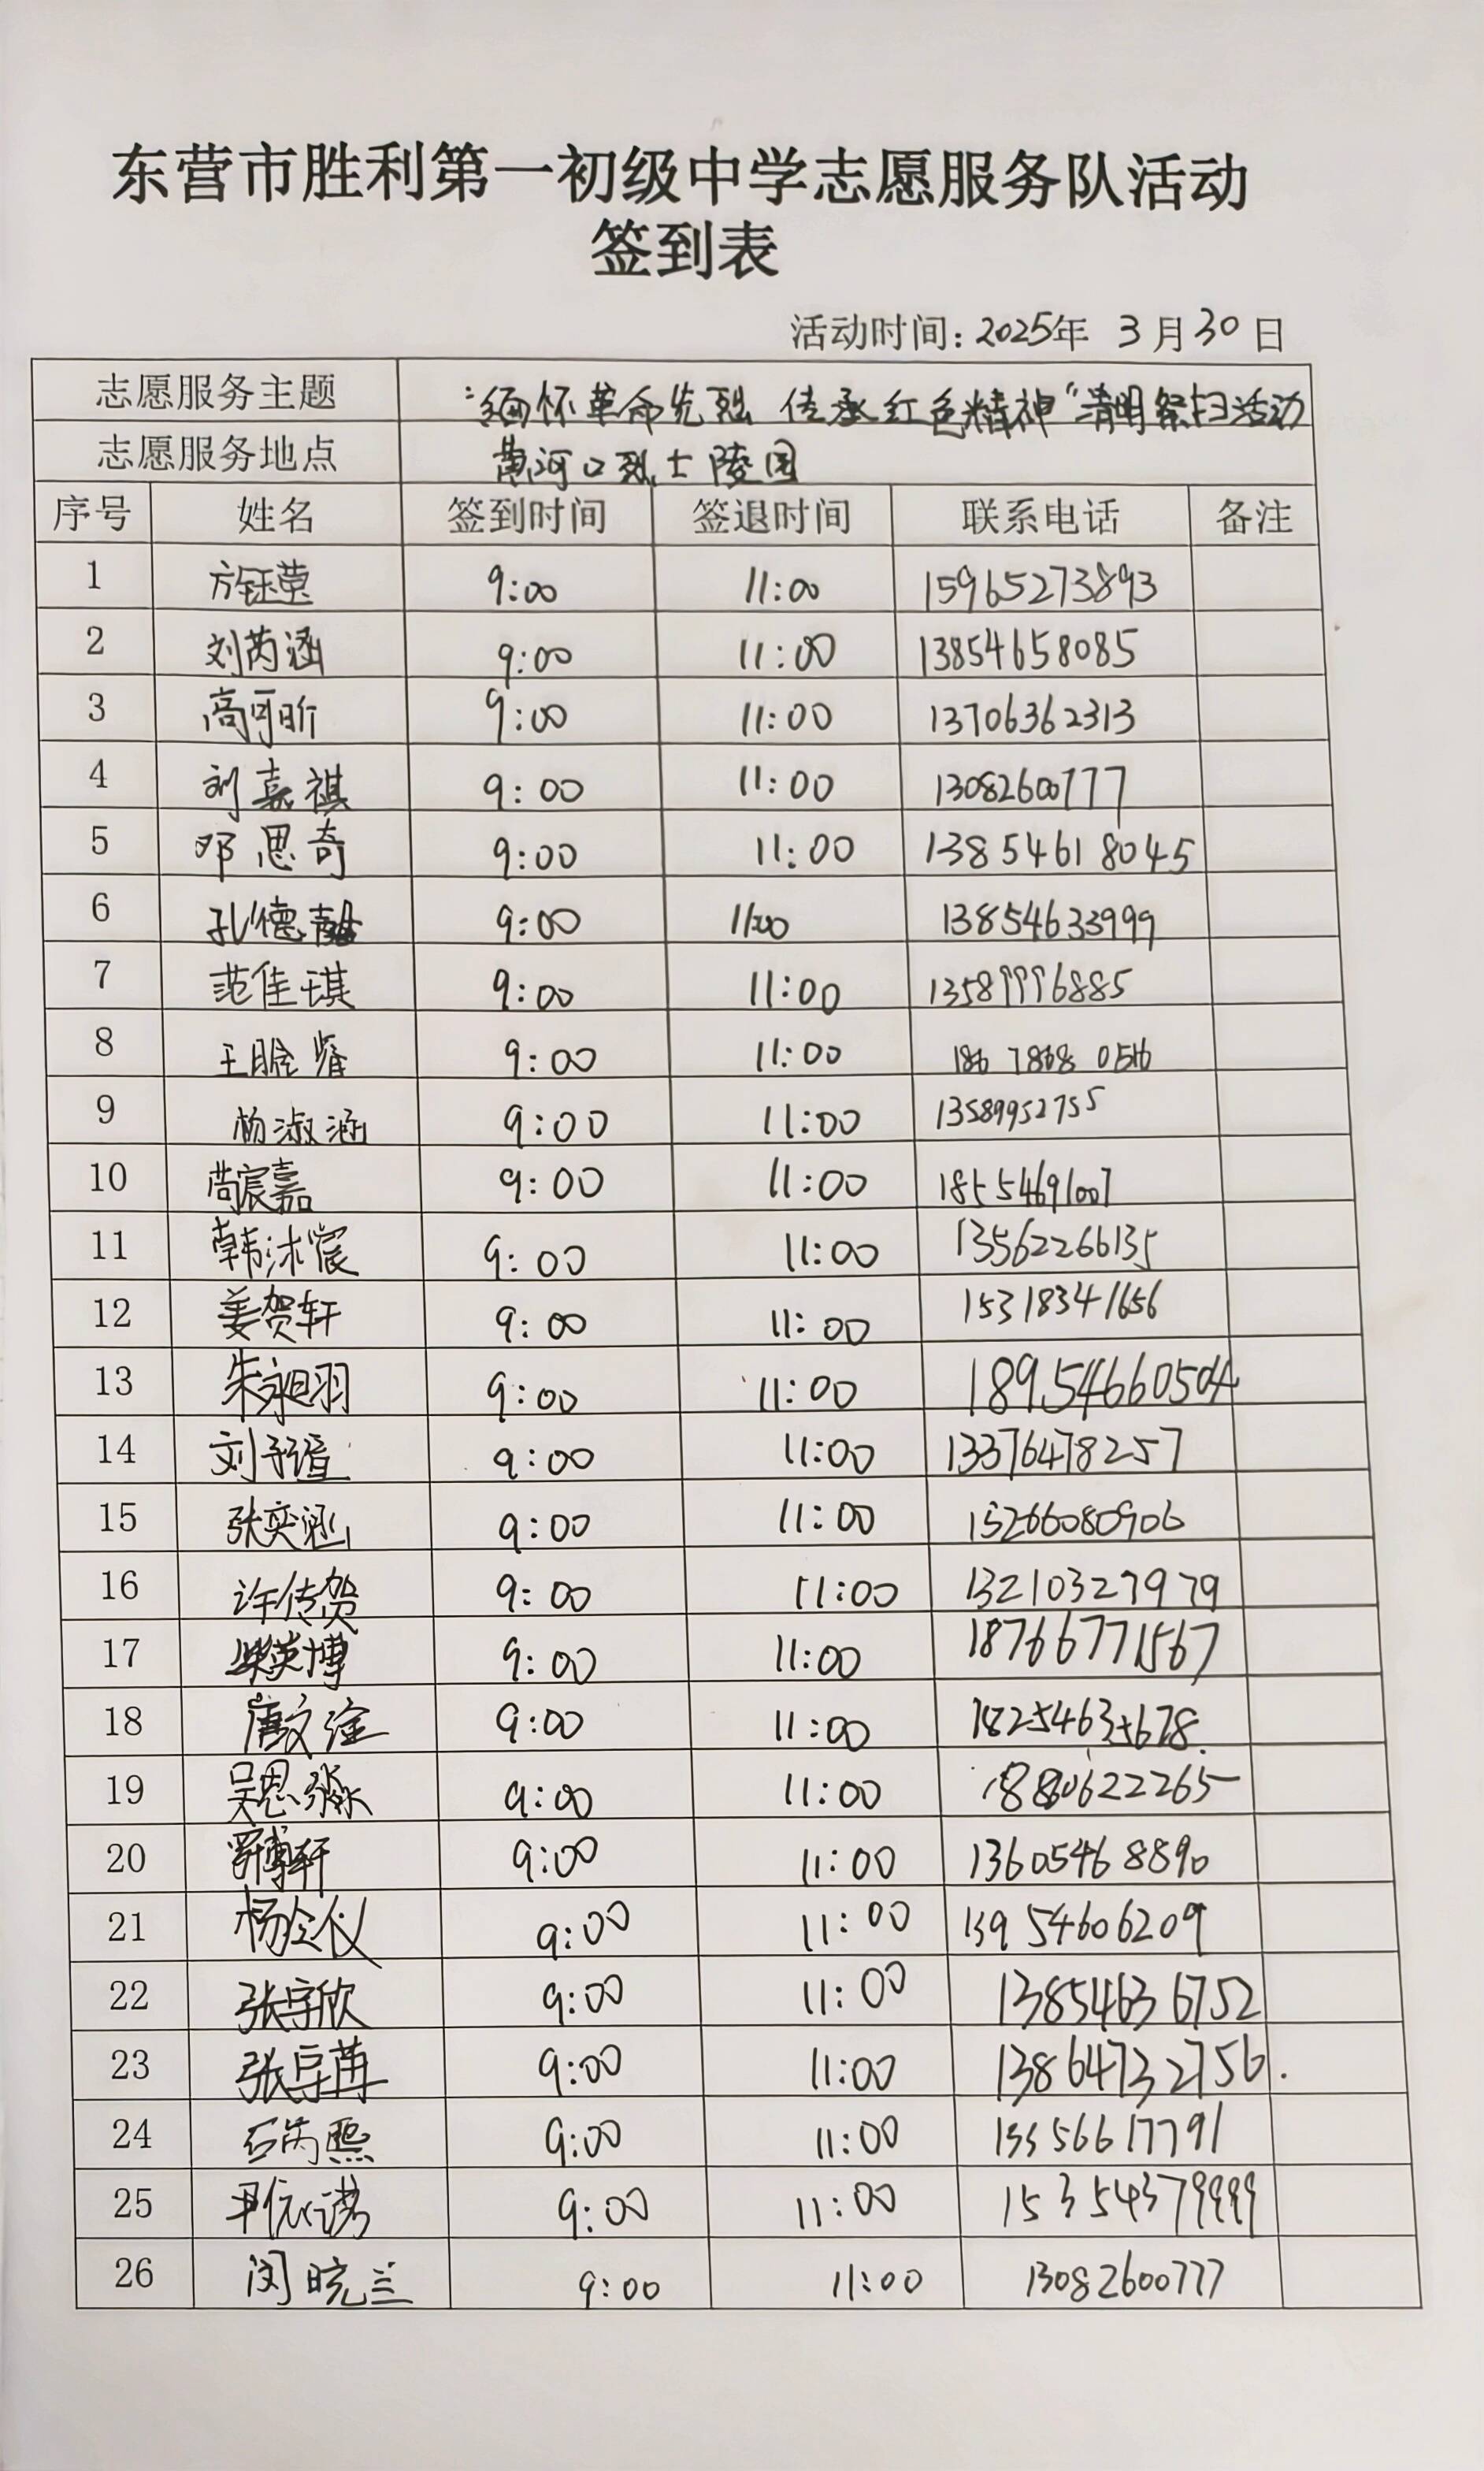 东营市胜利第一初级中学志愿服务队活动
签到表
活动时间: 2025年 3月30日
志愿服务主题 “缅怀革命先烈 传承红色精神”清明祭扫活动
志愿服务地点 黄河口烈士陵园
序号 姓名 签到时间 签退时间 联系电话 备注
1 方钰莹 9:00 11:00 15965273893
2 刘芮涵 9:00 11:00 13854658085
3 高可昕 9:00 11:00 13706362313
4 刘嘉祺 9:00 11:00 13082600777
5 邓思奇 9:00 11:00 13854618045
6 孔德 9:00 11:00 13854633999
7 范佳琪 9:00 11:00 13589996885
8 王 9:00 11:00
9 杨淑涵 9:00 11:00 13589952755
10 尚宸嘉 9:00 11:00 18554691007
11 韩沐宸 9:00 11:00 13562266135
12 姜贺轩 9:00 11:00 15318341656
13 朱昶羽 9:00 11:00 18954660504
14 刘子谊 9:00 11:00 13376478257
15 张奕涵 9:00 11:00 15266080906
16 许传贺 9:00 11:00 13210327979
17 英博 9:00 11:00 18766771567
18 唐文淦 9:00 11:00 18254635678
19 吴恩淼 9:00 11:00
20 博轩 9:00 11:00 13605468890
21 杨仪 9:00 11:00 13954606209
22 张宇欣 9:00 11:00 13854636752
23 张 9:00 11:00 13864732756
24 石芮熙 9:00 11:00 13356617791
25 尹依诺 9:00 11:00 15354379999
26 闵晓兰 9:00 11:00 13082600777